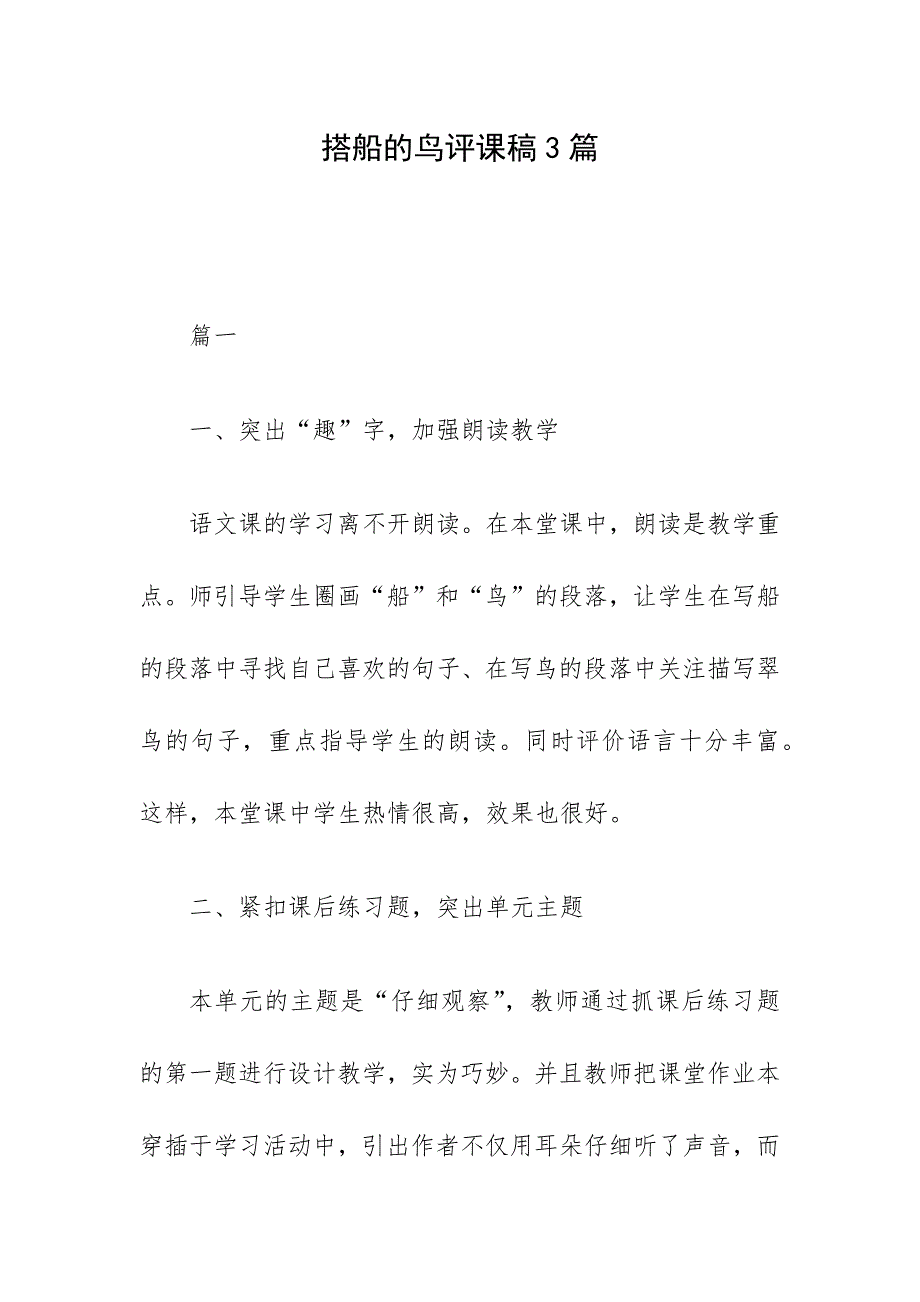 搭船的鸟评课稿3篇
篇一
一、突出“趣”字，加强朗读教学
语文课的学习离不开朗读。在本堂课中，朗读是教学重
点。师引导学生圈画“船”和“鸟”的段落，让学生在写船
的段落中寻找自己喜欢的句子、在写鸟的段落中关注描写翠
鸟的句子，重点指导学生的朗读。同时评价语言十分丰富。
这样，本堂课中学生热情很高，效果也很好。
二、紧扣课后练习题，突出单元主题
本单元的主题是“仔细观察”，教师通过抓课后练习题
的第一题进行设计教学，实为巧妙。并且教师把课堂作业本
穿插于学习活动中，引出作者不仅用耳朵仔细听了声音，而